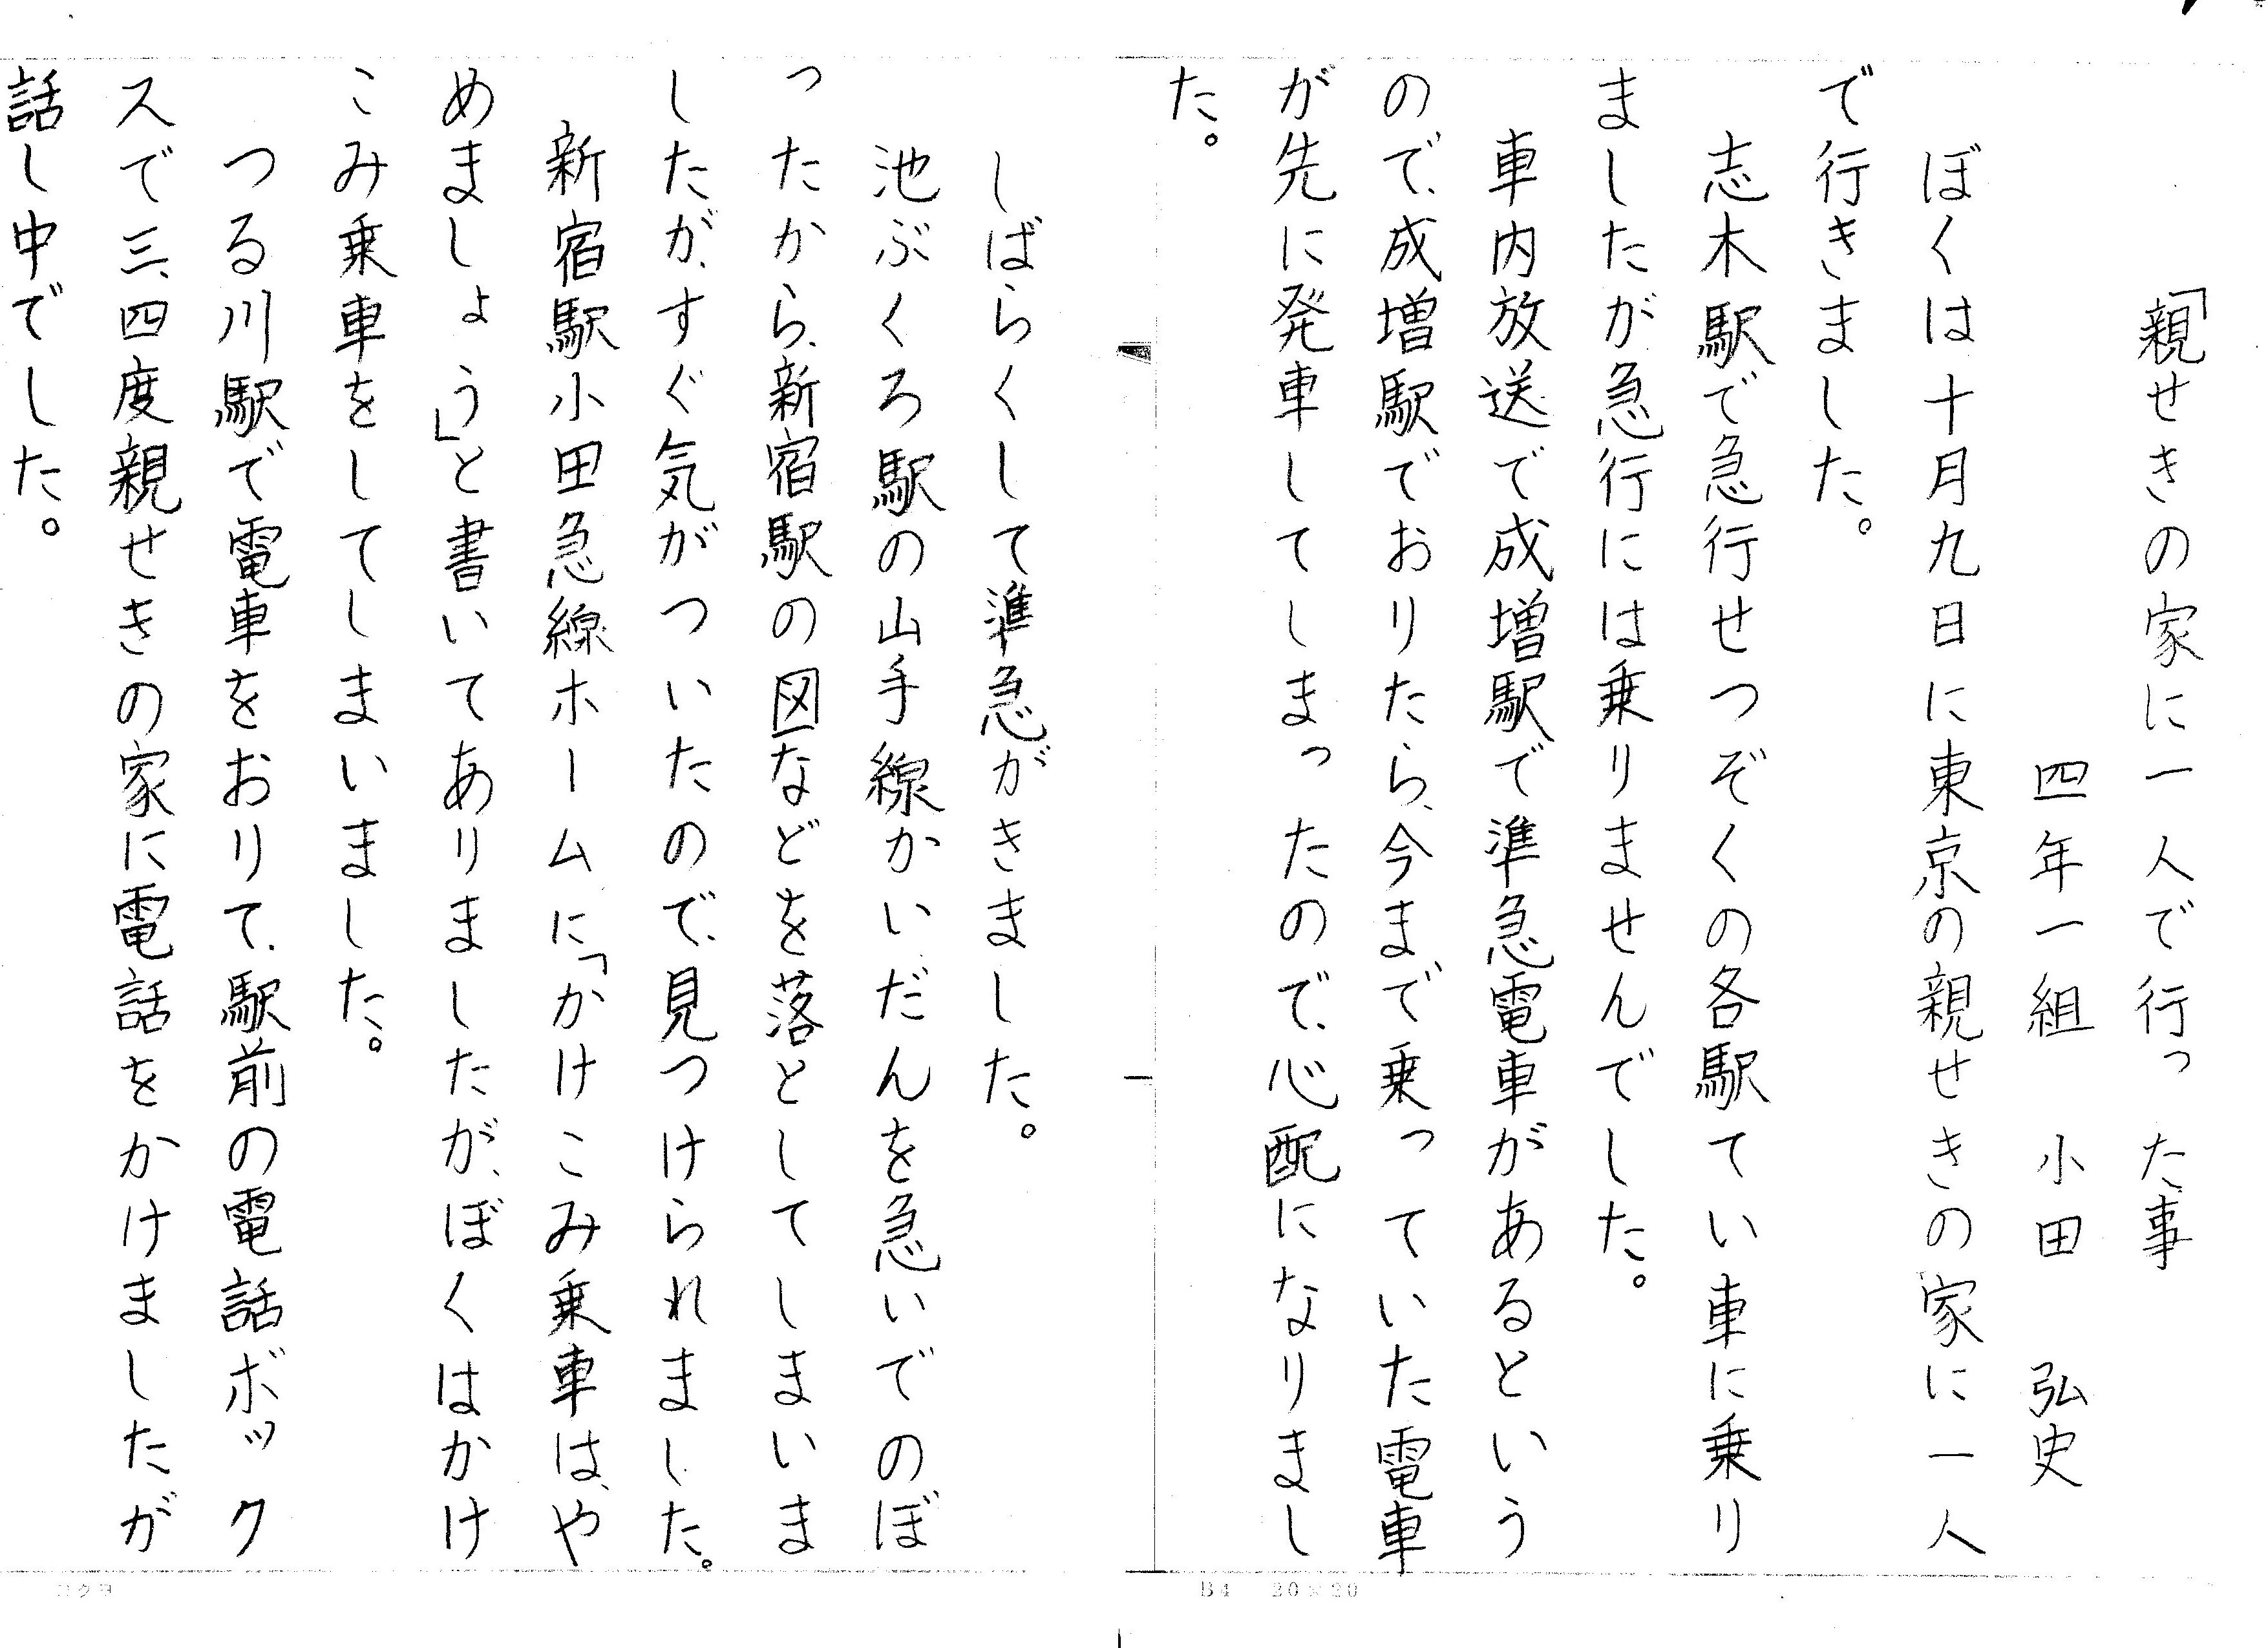 「親せきの家に一人で行った事
四年一組　小田　弘史
ぼくは十月九日に東京の親せきの家に一人
で行きました。
志木駅で急行せつぞくの各駅てい車に乗り
ましたが急行には乗りませんでした。
車内放送で成増駅で準急電車があるという
ので、成増駅でおりたら、今まで乗っていた電車
が先に発車してしまったので、心配になりまし
た。
しばらくして準急がきました。
池ぶくろ駅の山手線かいだんを急いでのぼ
ったから、新宿駅の図などを落としてしまいま
したが、すぐ気がついたので、見つけられました。
新宿駅小田急線ホームに「かけこみ乗車は、や
めましょう」と書いてありましたが、ぼくはかけ
こみ乗車をしてしまいました。
つる川駅で電車をおりて、駅前の電話ボック
スで三、四度親せきの家に電話をかけましたが
話し中でした。
B4　20×20
コクヨ